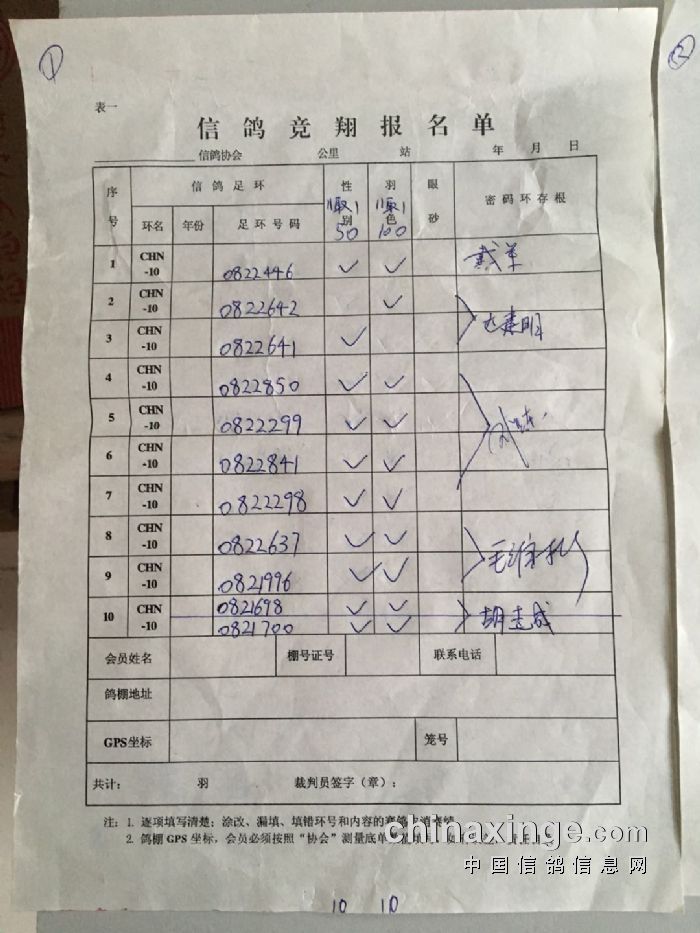 ①
②
表一
信鸽竞翔报名单
信鸽协会 公里 站 年 月 日
序号 信鸽足环 性别 羽色 眼砂 密码环存根
11取1 50 11取1 100
环名 年份 足环号码
1 CHN-10 0822446 ✓ ✓
2 CHN-10 0822642 ✓
3 CHN-10 0822641 ✓
4 CHN-10 0822850 ✓ ✓
5 CHN-10 0822299 ✓ ✓
6 CHN-10 0822841 ✓ ✓
7 CHN-10 0822298 ✓ ✓
8 CHN-10 0822637 ✓ ✓
9 CHN-10 0821996 ✓ ✓
10 CHN-10 0821698 ✓ ✓
0821700 ✓ ✓ 胡志成
会员姓名 棚号证号 联系电话
鸽棚地址
GPS坐标 笼号
共计： 羽 裁判员签字（章）：
注：1. 逐项填写清楚；涂改、漏填、填错环号和内容的赛鸽
2. 鸽棚GPS坐标，会员必须按照“协会”测量底单
chinaxinge.com
中国信鸽信息网
10 10